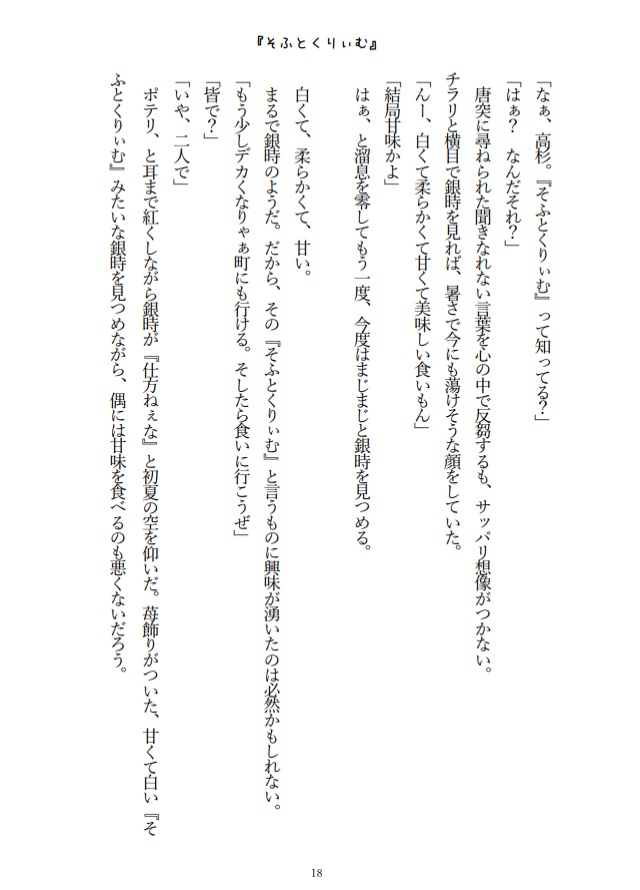 『そふとくりぃむ』
「なぁ、高杉。『そふとくりぃむ』って知ってる？」
「はぁ？　なんだそれ？」
　唐突に尋ねられた聞きなれない言葉を心の中で反芻するも、サッパリ想像がつかない。
チラリと横目で銀時を見れば、暑さで今にも蕩けそうな顔をしていた。
「んー、白くて柔らかくて甘くて美味しい食いもん」
「結局甘味かよ」
　はぁ、と溜息を零してもう一度、今度はまじまじと銀時を見つめる。
　白くて、柔らかくて、甘い。
　まるで銀時のようだ。だから、その『そふとくりぃむ』と言うものに興味が湧いたのは必然かもしれない。
「もう少しデカくなりゃぁ町にも行ける。そしたら食いに行こうぜ」
「皆で？」
「いや、二人で」
　ポテリ、と耳まで紅くしながら銀時が『仕方ねぇな』と初夏の空を仰いだ。苺飾りがついた、甘くて白い『そ
ふとくりぃむ』みたいな銀時を見つめながら、偶には甘味を食べるのも悪くないだろう。
18